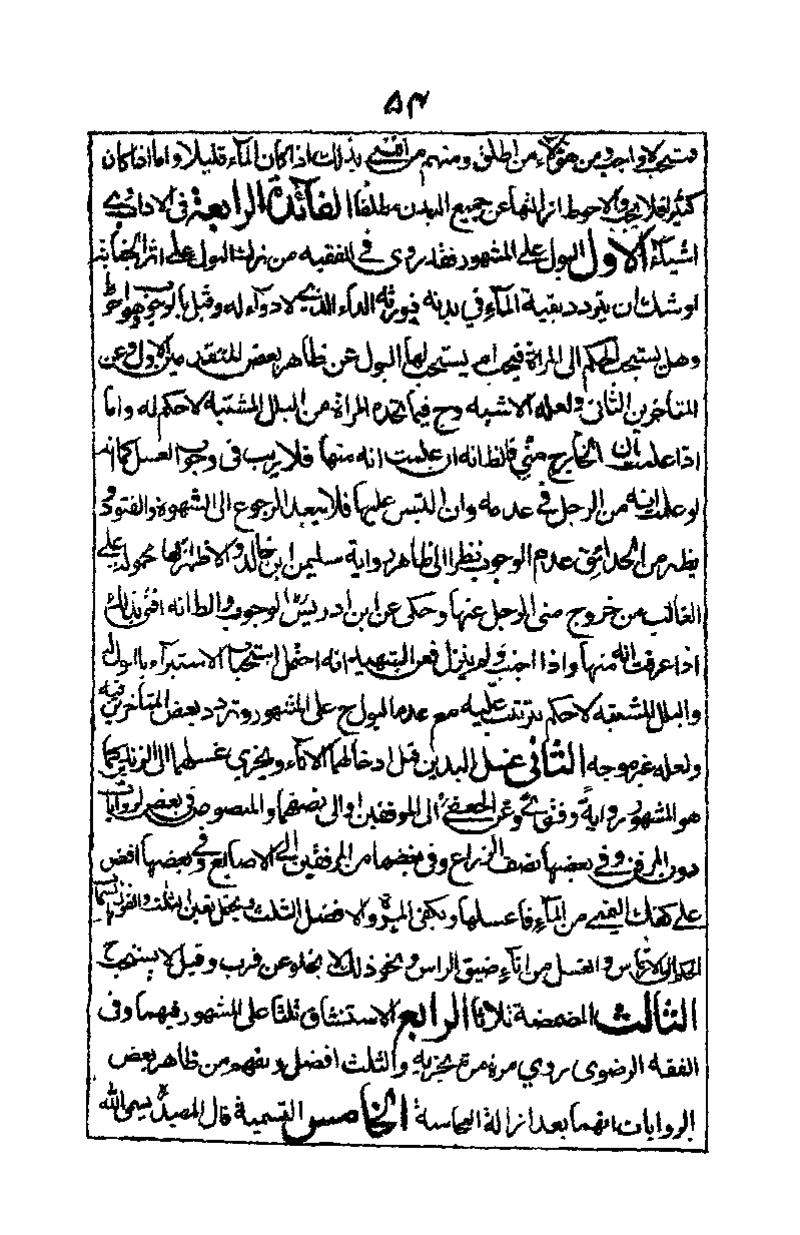 ٥٤
مستحب لا واجب ومن هؤلاء من اطلق ومنهم من افتى بذلك اذا كان الماء قليلا واما اذا كان
كثيرا فلا يجب والاحوط ازالتها عن جميع البدن مطلقا الفائدة الرابعة في الاداب وهي
اشياء الاول البول على المشهور فقد روى في الفقيه من ترك البول على اثر الجنابة
اوشك ان يتردد بقية الماء في بدنه فيورثه الداء الذي لا دواء له وقيل بالوجوب وهو احوط
وهل يستحب الحكم الى المراة فيه ام يستحب لها البول عن ظاهر بعض المتقدمين الاول وعن
المتاخرين الثاني ولعله الاشبه وح فيما تجده المراة من البلل المشتبه لا حكم له واما
اذا علمت بان الخارج مني فالظ انه ان علمت انه منها فلا ريب في وجوب الغسل كما انه
لو علمت انه من الرجل في عدمه وان التبس عليها فلا يبعد الرجوع الى الشهوة والفتور و
يظهر من الحدائق عدم الوجوب نظرا الى ظاهر رواية سليمن ابن خالد والاظهر انها محمولة على
الغالب من خروج منى الرجل عنها وحكى عن ابن ادريس الوجوب والظ انه افتى بذلك
اذا عرفت انه منها واذا اجنب ولم ينزل فعن التمهيد انه احتمل استحباب الاستبراء بالبول
والبلل المشتبه لا حكم يترتب عليه مع عدم الايلاج على المشهور وتردد بعض المتاخرين فيه
ولعله غير موجه الثاني غسل اليدين قبل ادخالهما الاناء ويجزي غسلهما الى الزندين كما
هو المشهور رواية وفتوى وعن الجعفي الى المرفقين او الى نصفهما والمنصوص في بعض الروايات
دون المرفق وفي بعضها نصف الذراع وفي بعضها من المرفقين الى الاصابع وفي بعضها افض
على كفك اليمنى من الماء فاغسلها ويكفى المرة والافضل الثلث ويحتمل تعين الثلث والقول
الحكم الى الارتماس والغسل من اناء ضيق الراس ونحو ذلك لا يخلو عن قرب وقيل لا يستحب
الثالث المضمضة ثلاثا الرابع الاستنشاق ثلثا على المشهور فيهما وفى
الفقه الرضوى يروي مرة مرة يجزيه والثلث افضل ويفهم من ظاهر بعض
الروايات انهما بعد ازالة النجاسة الخامس التسمية قال المفيد ره يسمى الله